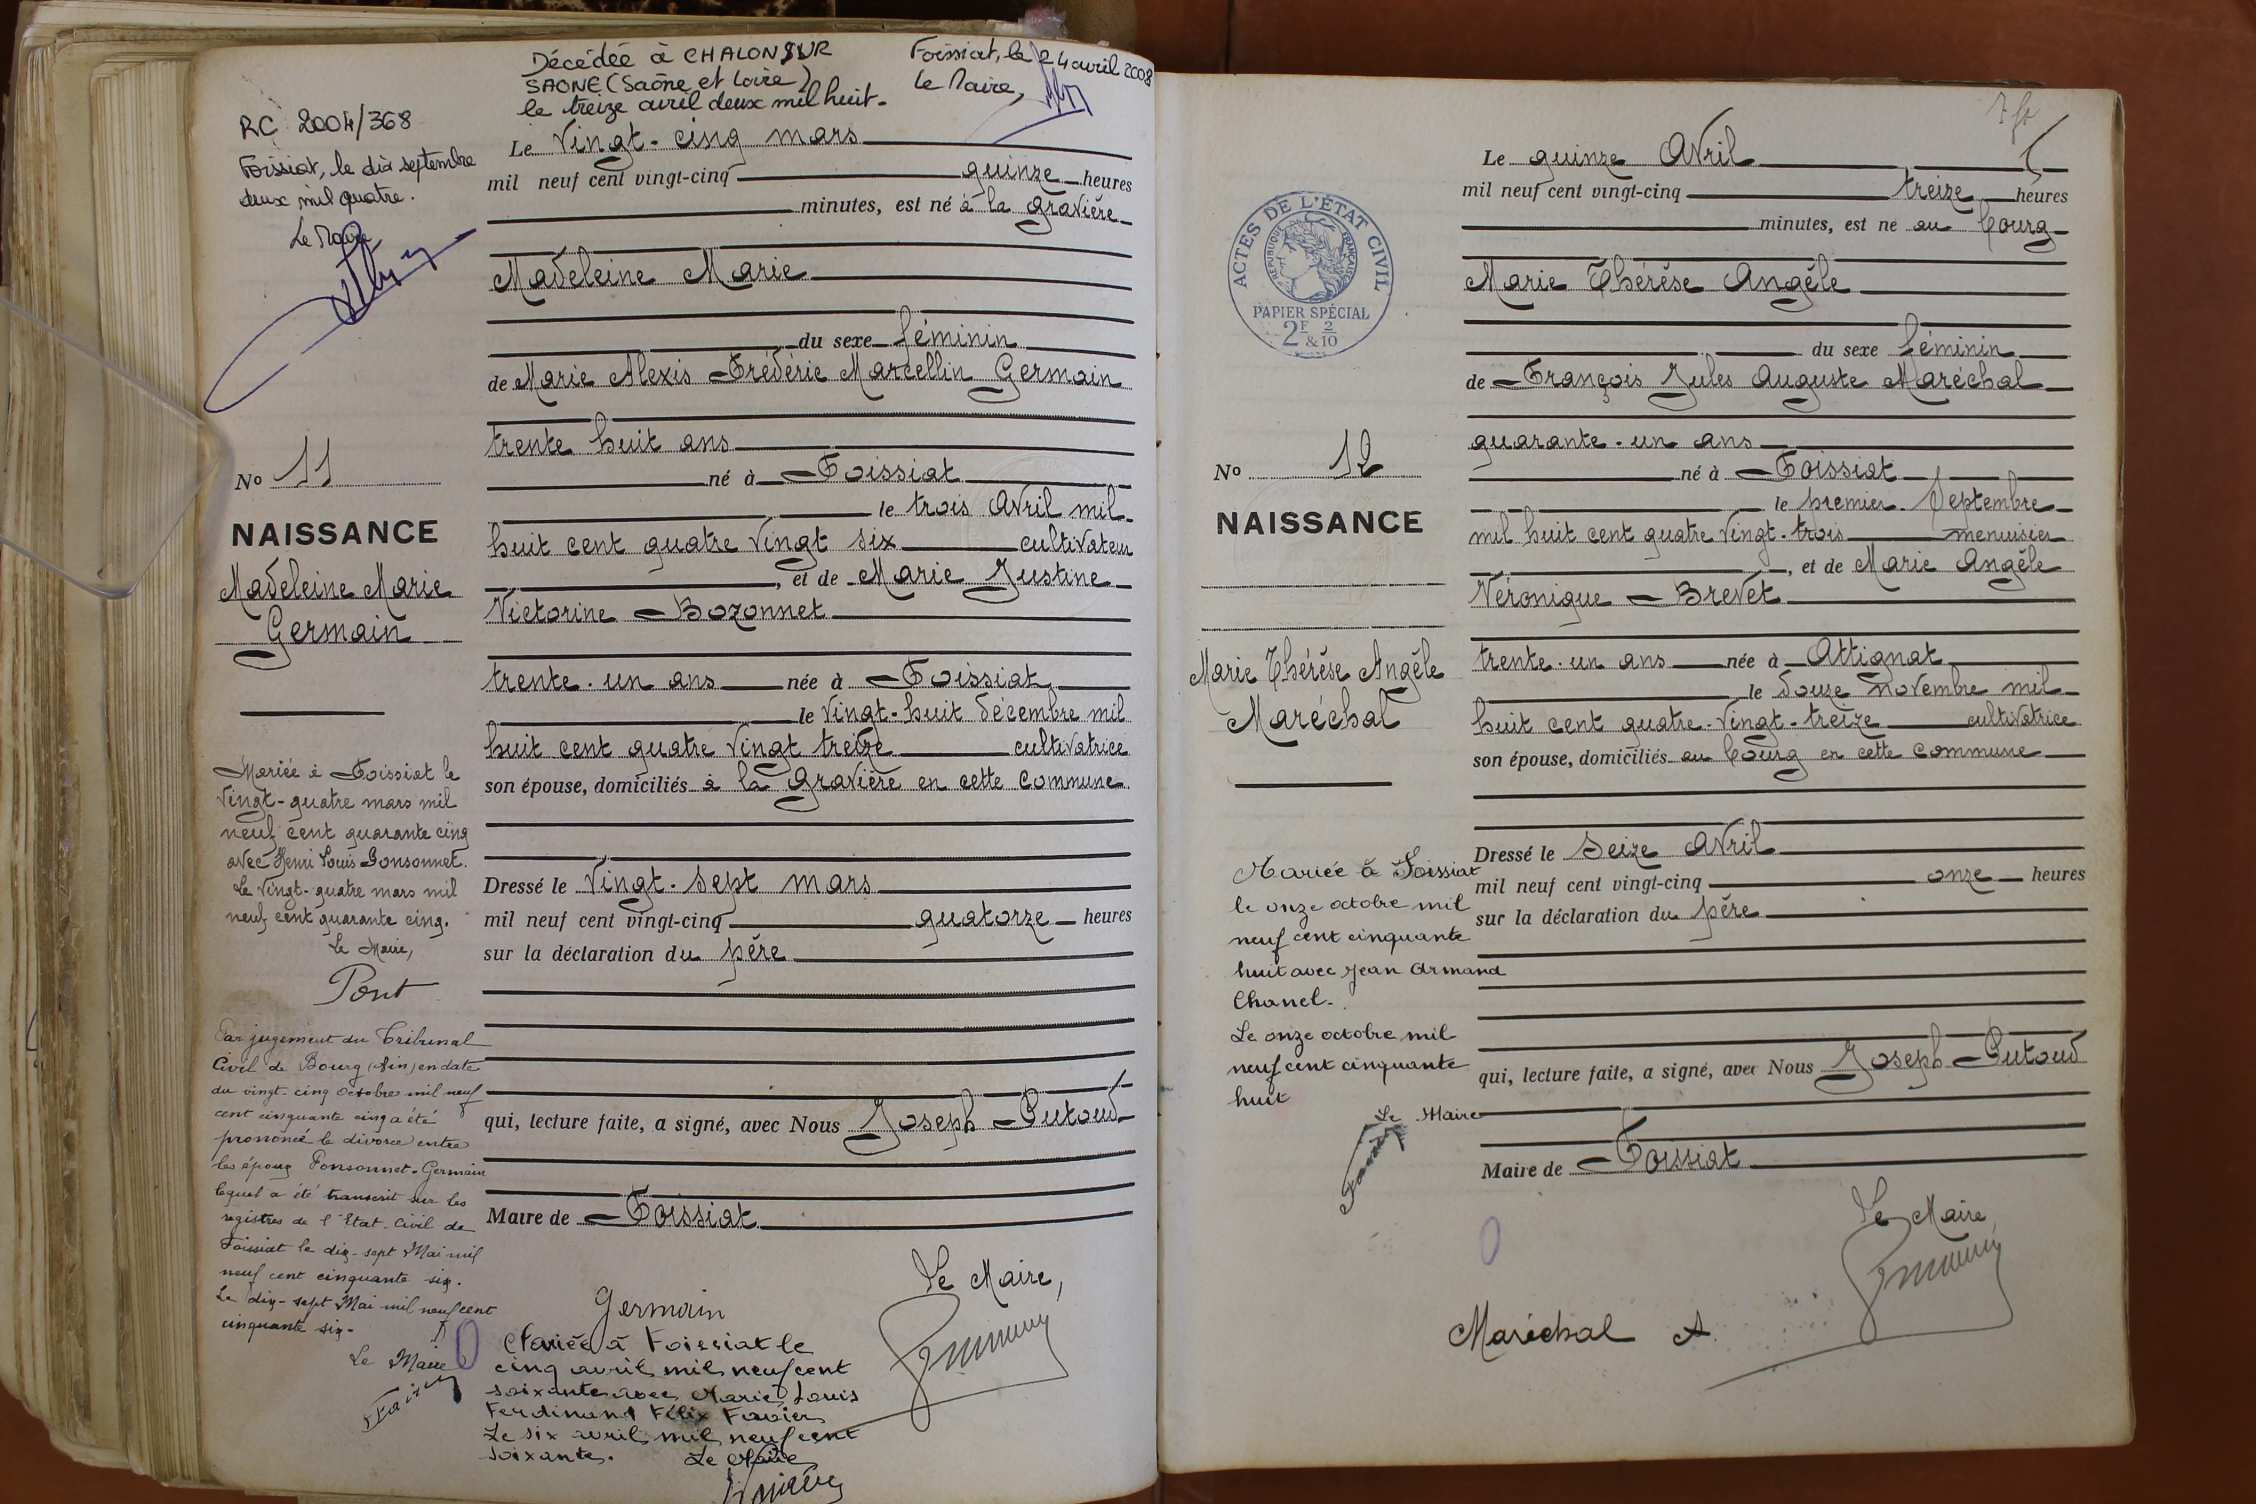 Décédée à CHALON SUR
SAONE (Saône et Loire)
le treize avril deux mil huit.
Foissiat, le 24 avril 2008
Le Maire,
RC 2004/368
Foissiat, le dix septembre
deux mil quatre.
Le Maire
Le Vingt-cinq mars
mil neuf cent vingt-cinq quinze heures
minutes, est né à la Gravière
Madeleine Marie
du sexe féminin
de Marie Alexis Frédéric Marcellin Germain
trente huit ans
né à Foissiat
le trois Avril mil
huit cent quatre vingt six cultivateur
, et de Marie Justine
Victorine Bozonnet
trente-un ans née à Foissiat
le vingt-huit décembre mil
huit cent quatre vingt treize cultivatrice
son épouse, domiciliés à la Gravière en cette commune
Dressé le vingt-sept mars
mil neuf cent vingt-cinq quatorze heures
sur la déclaration du père
qui, lecture faite, a signé, avec Nous Joseph Putoud
Maire de Foissiat
Le Maire,
Germain
No 11
NAISSANCE
Madeleine Marie
Germain
Mariée à Foissiat le
vingt-quatre mars mil
neuf cent quarante cinq
avec Henri Louis Ponsonnet.
Le vingt-quatre mars mil
neuf cent quarante cinq.
Le Maire,
Pont
Par jugement du Tribunal
Civil de Bourg (Ain) en date
du vingt-cinq Octobre mil neuf
cent cinquante cinq a été
prononcé le divorce entre
les époux Ponsonnet-Germain
lequel a été transcrit sur les
registres de l'Etat-Civil de
Foissiat le dix-sept Mai mil
neuf cent cinquante six.
Le dix-sept Mai mil neuf cent
cinquante six-
Le Maire
Mariée à Foissiat le
cinq avril mil neuf cent
soixante avec Marie Louis
Ferdinand Félix Favier
Le six avril mil neuf cent
soixante.
Le Maire
Le quinze Avril
mil neuf cent vingt-cinq treize heures
minutes, est né au bourg
Marie Thérèse Angèle
du sexe féminin
de François Jules Auguste Maréchal
quarante-un ans
né à Foissiat
le premier Septembre
mil huit cent quatre vingt-trois menuisier
, et de Marie Angèle
Véronique Brevet
trente-un ans née à Attignat
le douze novembre mil
huit cent quatre-vingt-treize cultivatrice
son épouse, domiciliés au bourg en cette commune
Dressé le seize Avril
mil neuf cent vingt-cinq onze heures
sur la déclaration du père
qui, lecture faite, a signé, avec Nous Joseph Putoud
Maire de Foissiat
Le Maire,
Maréchal A
ACTES DE L'ÉTAT CIVIL
RÉPUBLIQUE FRANÇAISE
PAPIER SPÉCIAL
2F & 2/10
No 12
NAISSANCE
Marie Thérèse Angèle
Maréchal
Mariée à Foissiat
le onze octobre mil
neuf cent cinquante
huit avec Jean Armand
Chanel.
Le onze octobre mil
neuf cent cinquante
huit
Le Maire